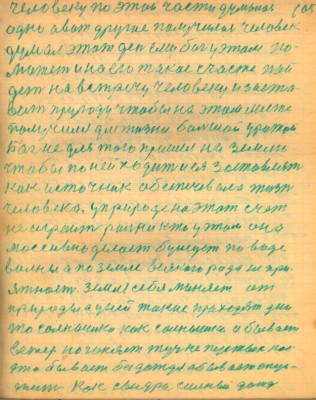 человеку по этой части думаная 105
одно а вот другое получилось человек
думал этот день ему богу этом по-
может и на его такое счастье прий
дет на встречу человеку и заста-
вит природу чтобы на этом месте
получили для жизни большой урожай
Бог не для того пришел на землю
чтобы по ней ходить и ея заставлят
как источник обеспечивала жизн
человека. у природе на этот счет
не играет ранки кто у этом она
массивно делает бушует по воде
волны а по земле всякого рода не при-
ятност. Земля себя меняет от
природы а у ней такие проходят дни
то солнышко как солнышко а бывает
ветер погоняет туч не пустых ког-
да бывает бы дождя а бывает опус-
тит. Как сыпля сильный дожд